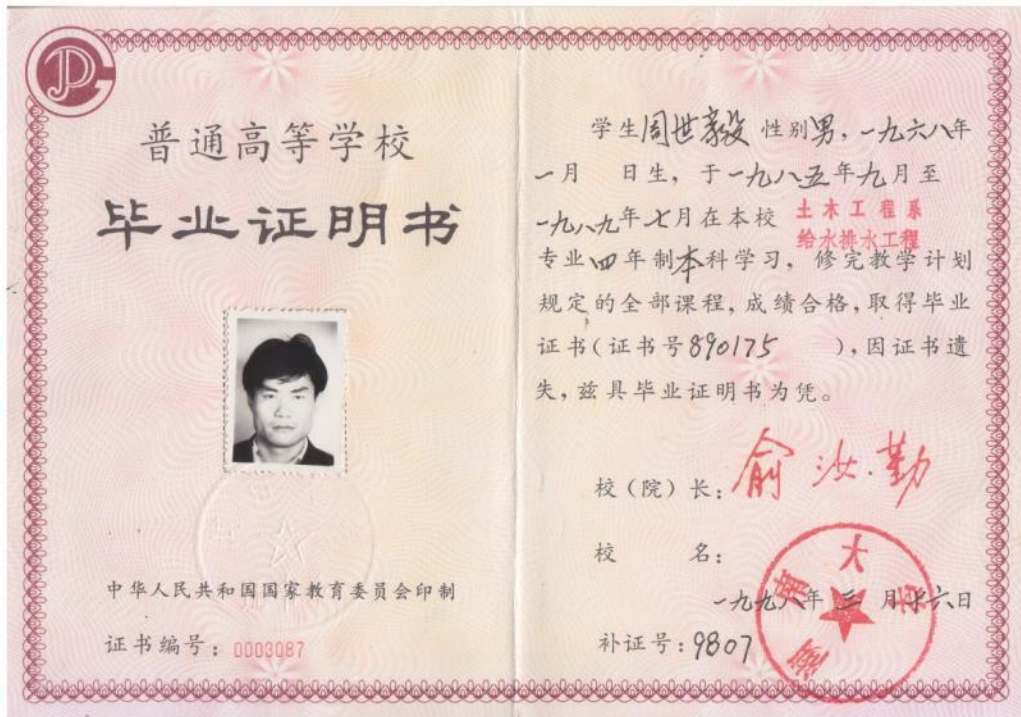 普通高等学校
毕业证明书
中华人民共和国国家教育委员会印制
证书编号：0003087
学生周世毅 性别男，一九六八年
一月 日生，于一九八五年九月至
一九八九年七月在本校 土木工程系
给水排水工程
专业四年制本科学习，修完教学计划
规定的全部课程，成绩合格，取得毕业
证书(证书号890175 )，因证书遗
失，兹具毕业证明书为凭。
校(院)长：俞汝勤
校 名：
湖南大学
一九九八年三月十六日
补证号：9807